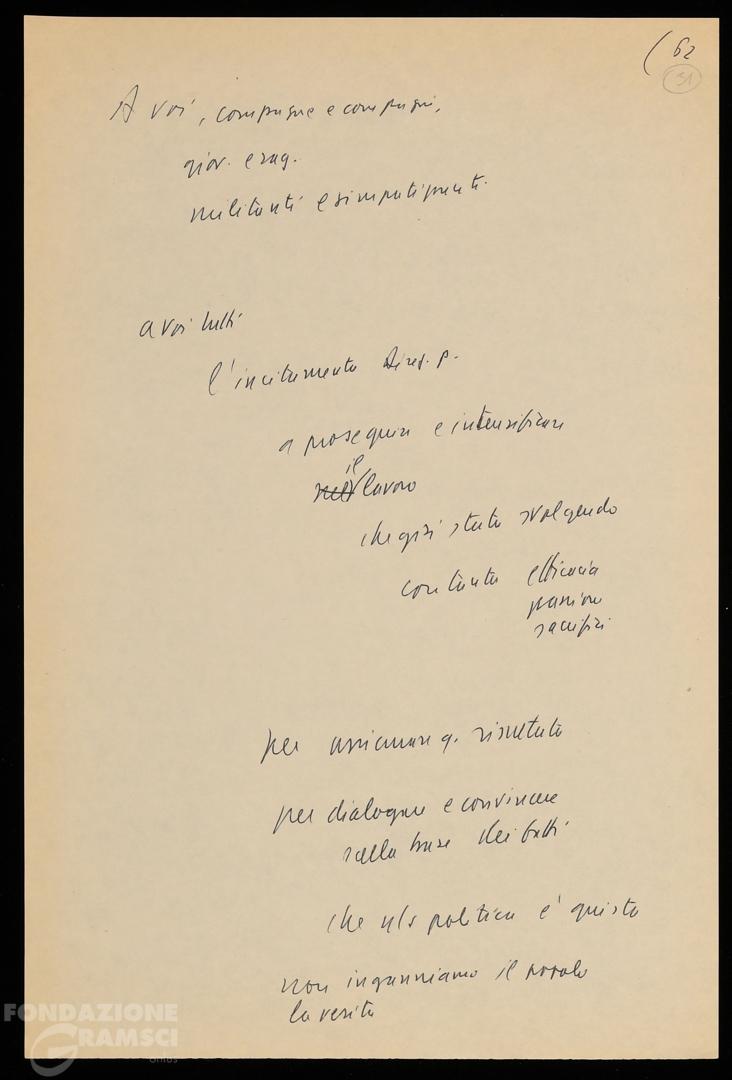 ( 62
31
A voi, compagne e compagni,
giov. e rag.
militanti e simpatizzanti
a voi tutti
l'incitamento Direz. P.
a proseguire e intensificare
il
lavoro
che già state svolgendo
con tanta efficacia
passione
sacrifizi
per assicurare q. risultato
per dialogare e convincere
sulla base dei fatti
che ns politica è giusta
non inganniamo il popolo
la verità
FONDAZIONE
GRAMSCI
onlus